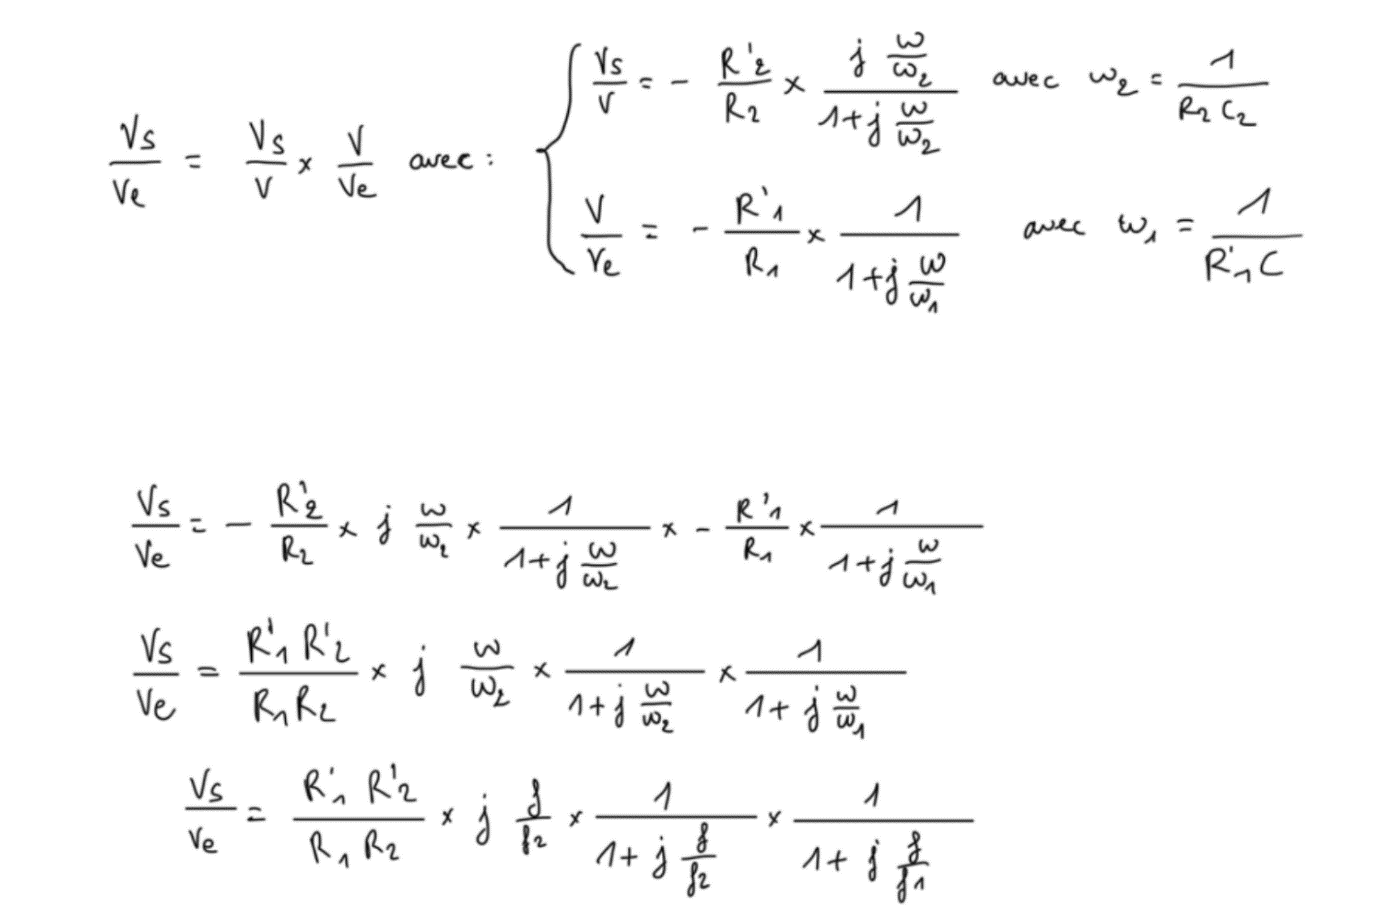 Vs/Ve = Vs/V × V/Ve avec : { Vs/V = - R'2/R2 × (j ω/ω2)/(1+j ω/ω2) avec ω2 = 1/(R2 C2)
V/Ve = - R'1/R1 × 1/(1+j ω/ω1) avec ω1 = 1/(R'1 C)
Vs/Ve = - R'2/R2 × j ω/ω2 × 1/(1+j ω/ω2) × - R'1/R1 × 1/(1+j ω/ω1)
Vs/Ve = (R'1 R'2)/(R1 R2) × j ω/ω2 × 1/(1+j ω/ω2) × 1/(1+j ω/ω1)
Vs/Ve = (R'1 R'2)/(R1 R2) × j f/f2 × 1/(1+j f/f2) × 1/(1+j f/f1)